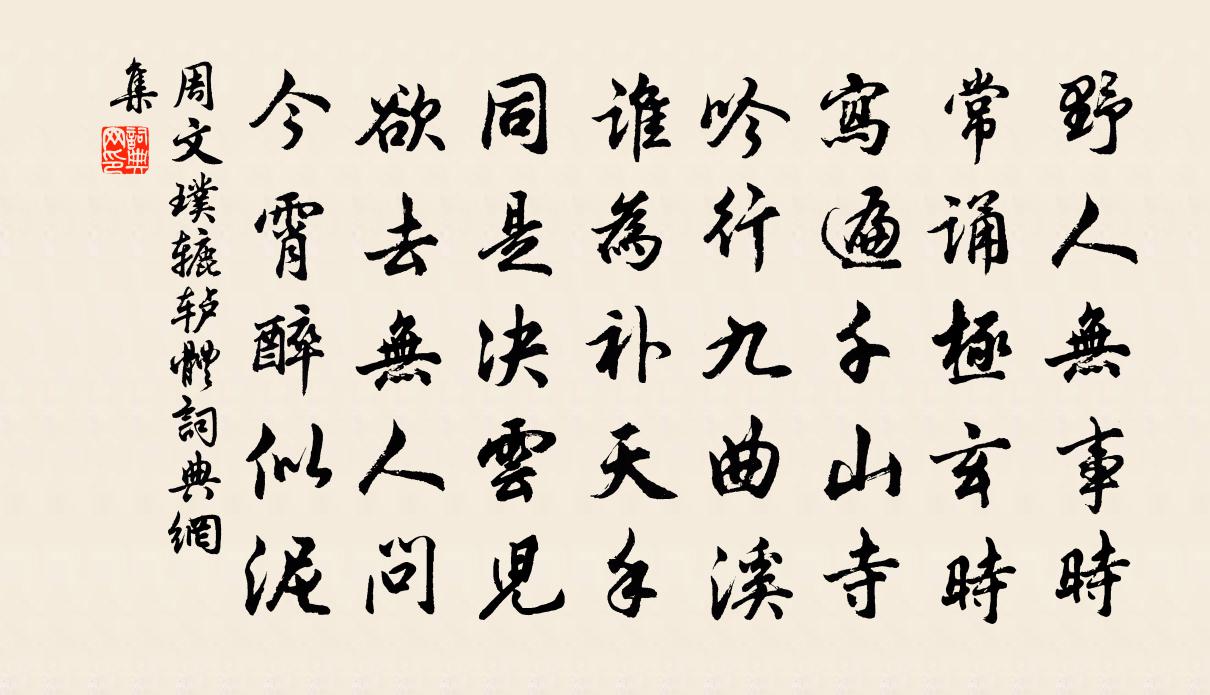 野人無事時
常誦極玄時
寫遍千山寺
吟行九曲溪
誰為补天手
同是决雲児
欲去無人問
今霄醉似泥
周文璞辘轳體詞典網
集
詞典
网印